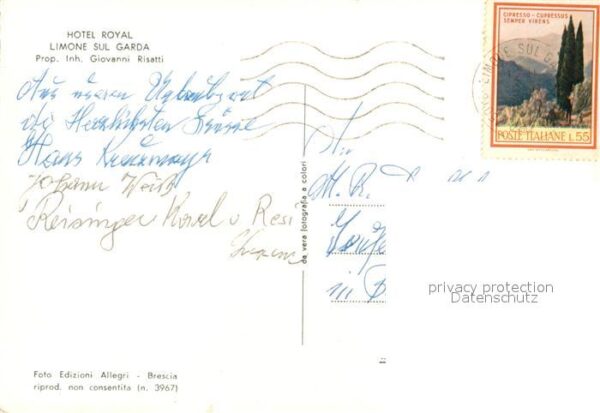 HOTEL ROYAL
LIMONE SUL GARDA
Prop. Inh. Giovanni Risatti
CIPRESSO - CUPRESSUS
SEMPER VIRENS
POSTE ITALIANE L.55
LIMONE SUL GARDA
Aus Urlaubsort
die Herzlichsten Grüsse
Hans
Johann Weiß
Reisinger Karl u Resi
An
M. R.
in
da vera fotografia a colori
privacy protection
Datenschutz
Foto Edizioni Allegri - Brescia
riprod. non consentita (n. 3967)